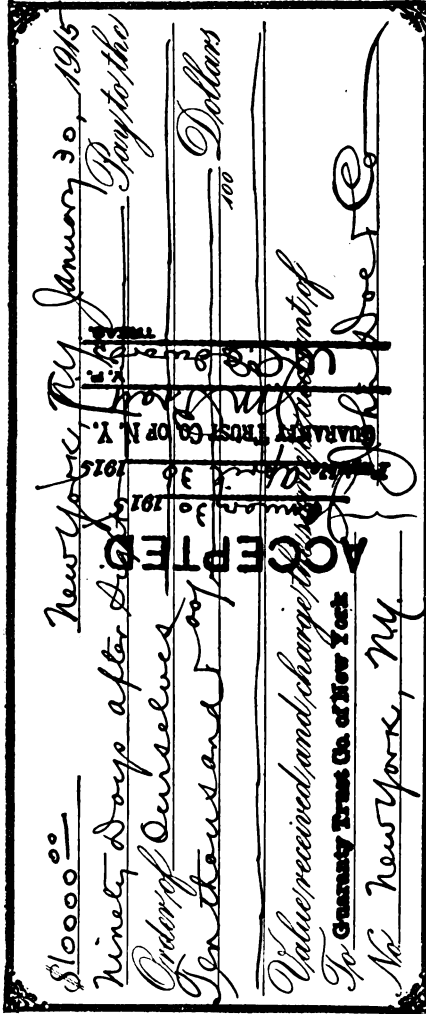 $10000 00 New York, N.Y. January 30, 1915
Ninety Days after Sight Pay to the
Order of Ourselves
Ten thousand 00/100 Dollars
Value received and charge the same to account of
To Guaranty Trust Co. of New York John Doe & Co.
No. New York, N.Y.
ACCEPTED
January 30 1915
Payable April 30 1915
GUARANTY TRUST CO. OF N. Y.
V. P.
TREAS.